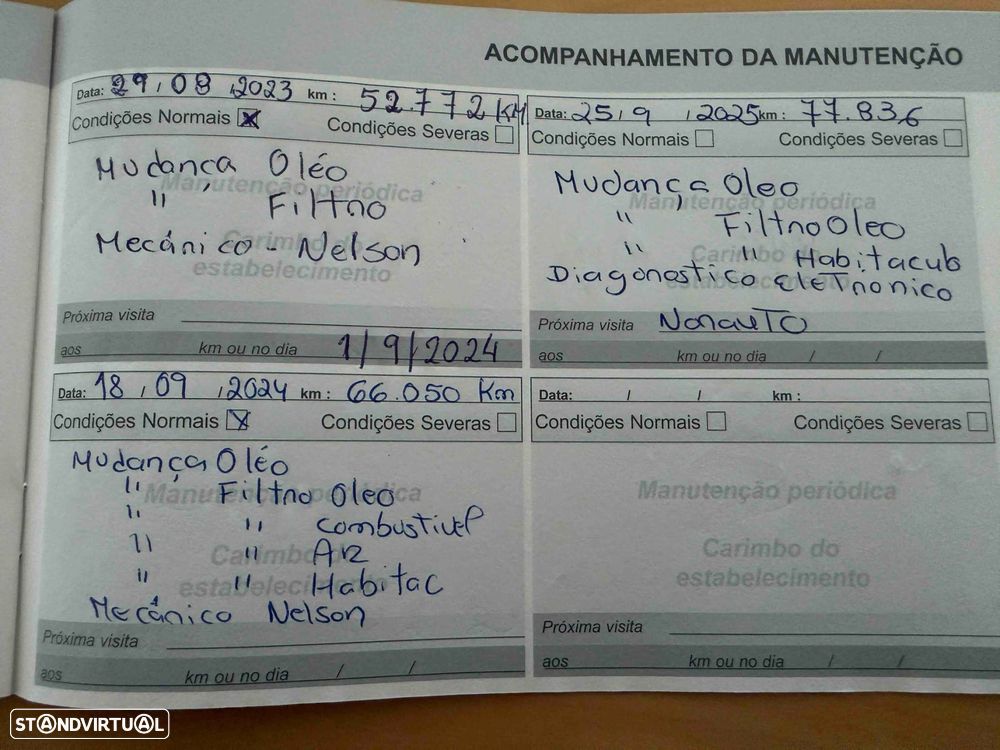 ACOMPANHAMENTO DA MANUTENÇÃO
Data: 29/08/2023 km : 52.772 KM
Condições Normais X
Condições Severas
Manutenção periódica
Carimbo do
estabelecimento
Mudança Oléo
" Filtro
Mecânico - Nelson
Próxima visita
aos km ou no dia 1/9/2024
Data: 25/9/2025 km : 77.836
Condições Normais
Condições Severas
Manutenção periódica
Carimbo do
estabelecimento
Mudança Oleo
" Filtro Oleo
" " Habitaculo
Diagonostico eleTronico
Próxima visita NorauTo
aos km ou no dia / /
Data: 18/09/2024 km : 66.050 Km
Condições Normais X
Condições Severas
Manutenção periódica
Carimbo do
estabelecimento
Mudança Oléo
" Filtro Oleo
" " Combustivel
" " Ar
" " Habitac
Mecânico Nelson
Próxima visita
aos km ou no dia / /
Data: / / km :
Condições Normais
Condições Severas
Manutenção periódica
Carimbo do
estabelecimento
Próxima visita
aos km ou no dia / /
STANDVIRTUAL